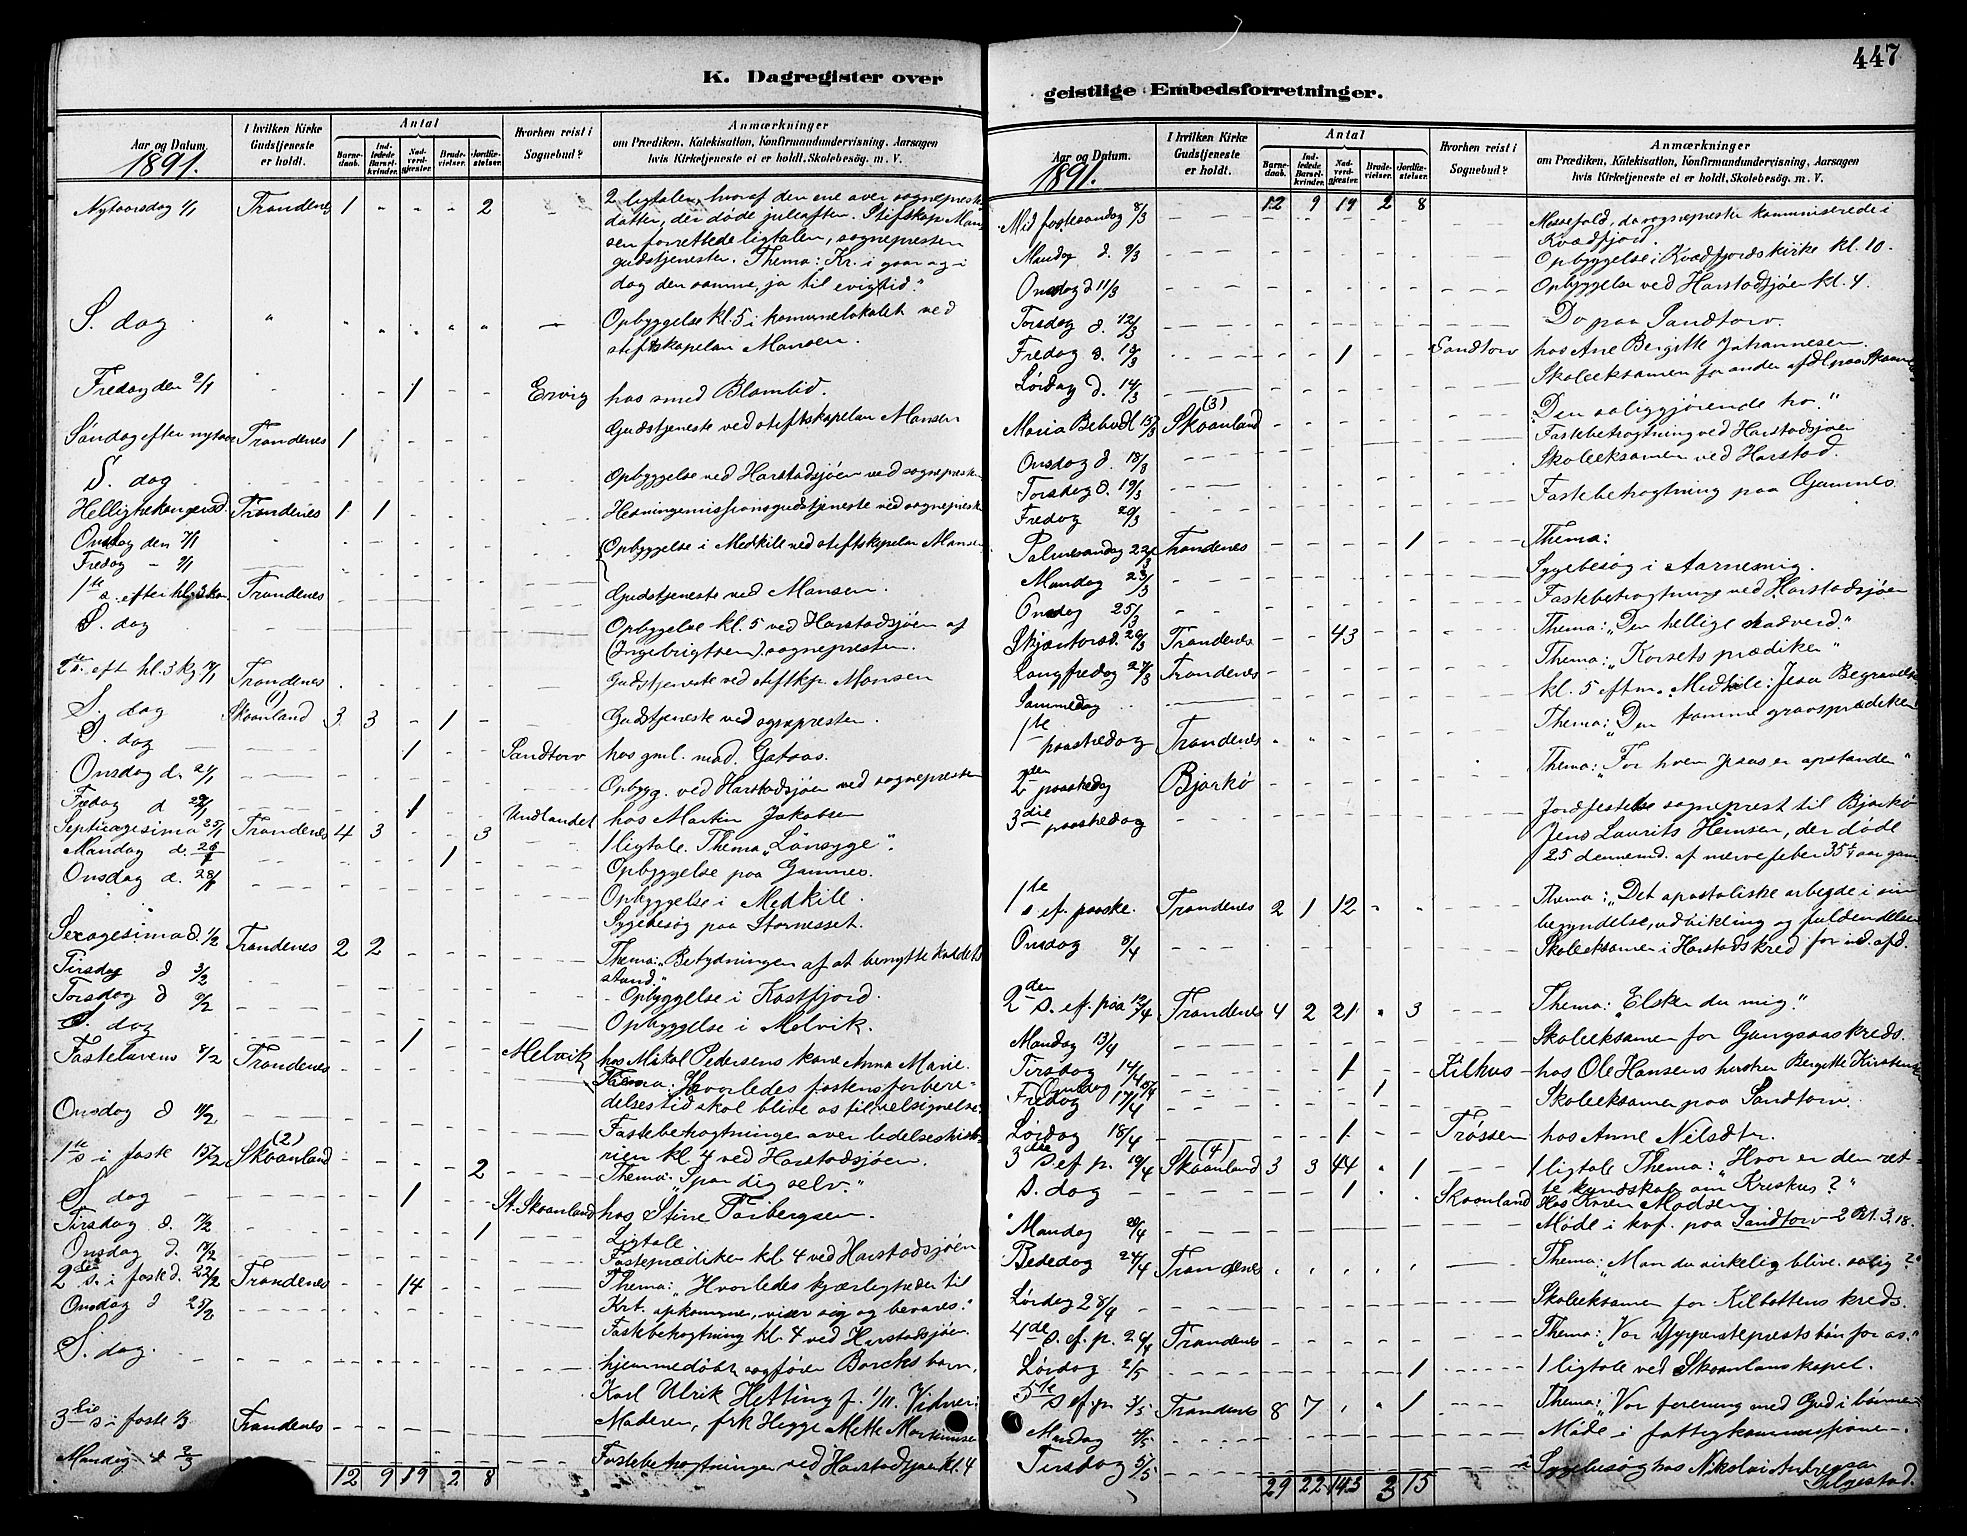 447
K. Dagregister over
geistlige Embedsforretninger.
Aar og Datum.
1891.
I hvilken Kirke
Gudstjeneste
er holdt.
Antal
Barne-
daab.
Ind-
ledede
Barsel-
kvinder.
Nad-
verd-
gjæster.
Brude-
vielser.
Jordfæ-
stelser.
Hvorhen reist i
Sognebud?
Anmærkninger
om Prædiken, Katekisation, Konfirmandundervisning, Aarsagen
hvis Kirketjeneste ei er holdt, Skolebesög. m. V.
Nytaarsdag 1/1 Trondenes 1 - - - 2 - 2 ligtaler, hvoraf den ene over sogneprestens
datter, der døde juleaften. Stiftskap. Man
sen forrettede ligtalen, sognepresten
gudstjenesten. Thema: Kr. i gaar og i
dag den samme, ja til evig tid."
S. dag Opbyggelse kl. 5 i komunelokalet ved
stiftskapelan Mansen.
Fredag den 2/1 1 Ervig hos smed Blomlid.
Søndag efter nytaar Trondenes 1 Gudstjeneste ved stiftskapelan Mansen
S. dag Opbyggelse ved Harstadsjøen ved sognepresten
Trondenes 1 1 Hedningemissionsgudstjeneste ved sognepresten
Onsdag den 7/1 Opbyggelse i Medkile ved stiftskapelan Mansen
Fredag - 9/1
1ste s. efter hl. 3 kon. Trondenes Gudstjeneste ved Mansen.
S. dag Opbyggelse kl. 5 ved Harstadsjøen af
(Ingebrigtsen) sognepresten.
2 s. eft hl. 3 kg Trondenes Gudstjeneste ved stiftkp. Mansen
S. dag (1) Skaanland 3 3 - 1 - Gudstjeneste ved sognepresten.
S. dag 1 Sandtorv hos gml. mad. Gataas.
Onsdag d. 21/1 Opbygg. ved Harstadsjøen ved sognepresten
Fredag d 1 Undlandet hos Martin Jakobsen
Septuagesima 25/1 Trondenes 4 3 - - 3 1 ligtale. Thema „Lønsyge".
Mandag d. 26/1 1 Opbyggelse paa Gamnes.
Onsdag d. 28/1 Opbyggelse i Medkile.
Sygebesøg paa Stornesset.
Sexagesima d. 1/2 Trondenes 2 2 Thema: „Betydningen af at benytte kaldets
stund."
Tirsdag d 3/2 Opbyggelse i Kastfjord.
Torsdag d Opbyggelse i Melvik.
S. dag 1 Melvik hos Mikal Pedersens kone Anna Marie.
Fastelavens 8/2 Trondenes Thema: Hvorledes fastens forbere-
delsestid skal blive os til velsignelse.
Onsdag d 11/2 Fastebetragtninger over lidelseshisto
rien kl. 4 ved Harstadsjøen.
1ste s i faste 15/2 (2) Skaanland 2 Thema: „Spar dig selv."
S dag 1 St. Skaanland hos Stine Torbergsen.
Tirsdag d. 17/2 1 Ligtale
Onsdag d. Fasteprædiken kl. 4 ved Harstadsjøen
2den s. i faste d. 22/2 Trondenes - - 14 Thema: „Hvorledes kjærligheden til
Krt. opkommer, viser sig og bevares."
Onsdag d 25/2 Fastebetragtning kl. 4 ved Harstadsjøen.
S. dag. hjemmedøbt sagfører Borchs barn,
Karl Ulrik Hetting f. Vidner:
Moderen, frk Hegge Mette Martinusen
3die s. i faste 1/3 Trondenes
Mandag d 2/3 Fastebetragtninger ved Harstadsjøen kl. 4
12 9 19 2 8
Aar og Datum.
1891.
I hvilken Kirke
Gudstjeneste
er holdt.
Antal
Barne-
daab.
Ind-
ledede
Barsel-
kvinder.
Nad-
verd-
gjæster.
Brude-
vielser.
Jordfæ-
stelser.
Hvorhen reist i
Sognebud?
Anmærkninger
om Prædiken, Katekisation, Konfirmandundervisning, Aarsagen
hvis Kirketjeneste ei er holdt, Skolebesög. m. V.
12 9 19 2 8
Midfastesøndag 8/3 Messefald, da sognepresten kommuniserede i
Kvædfjord.
Mandag d. 9/3 Opbyggelse i Kvædfjords kirke kl. 10.
Onsdag d 11/3 Opbyggelse ved Harstadsjøen kl. 4.
Torsdag d. 12/3 Do paa Sandtorv.
Fredag d. 13/3 1 Sandtorv hos Ane Bergitte Johannesen.
Lørdag d. 14/3 Skoleeksamen for anden afdl. paa Skaanland
Maria Bebud. 15/3 (3) Skaanland „Den saliggjørende tro."
Onsdag d. 18/3 Fastebetragtning ved Harstadsjøen
Torsdag d. 19/3 Skoleeksamen ved Harstad.
Fredag 20/3 Fastebetragtning paa Gamnes
Palmesøndag 22/3 Trondenes 1 Thema:
Mandag 23/3 Sygebesøg i Aarnemig.
Onsdag 25/3 Fastebetragtning ved Harstadsjøen
Skjærtorsd. 26/3 Trondenes - - 43 Thema: „Den hellige nadverd."
Langfredag 27/3 Trondenes Thema: „Korsets prædiken"
Sammedag kl. 5 eftm. Medkile: Jesu Begravelse
1ste paaskedag Trondenes Thema: „Den tomme gravs prædiken
2den paaskedag Bjarkø Thema: „For hvem Jesus er opstanden"
3die paaskedag Jordfestelse sogneprest til Bjarkø
Jens Laurits Hemsen, der døde
25 dennemd. af nervefeber 35 aar gam
1ste s ef. paaske. Trondenes 2 1 12 Thema: „Det apostoliske arbeide i sin
begyndelse, udvikling og fuldendelse
Onsdag 8/4 Skoleeksamen i Harstads kred for ned. afd.
2den s. ef. paa 12/4 Trondenes 4 2 21 3 Thema: „Elsker du mig"
Mandag 13/4 Skoleeksamen for Gangsaaskreds.
Tirsdag 14/4 1 Kilhus hos Ole Hansens hustru Bergitte Kirstens
Onsdag 15/4 1
Fredag 17/4 Skoleeksamen paa Sandtorv.
Lørdag 18/4 1 Trøssen hos Anne Nilsdtr.
3die s. ef. p. 19/4 (4) Skaanland 3 3 44 1 1 ligtale Thema: „Hvor er den ret-
te kundskab om Kristus?"
S. dag 1 Skaanland Hos Karen Madsen
Mandag 20/4 Møde i kof. paa Sandtorv 2 Pt. 3, 18.
Bededag 24/4 Trondenes Thema: „Man du virkelig blive salig?"
Lørdag Skoleeksamen for Kilbottens kreds.
4de s. ef. p. 26/4 Trondenes Thema: „Vor Ypperstepræsts bøn for os."
Lørdag 2/5 1 1 ligtale ved Skaanlans kapel.
5te s. ef. p 3/5 Trondenes 8 7 1 Thema: „Vor forening med Gud i bønnen
Mandag 4/5 Møde i fattigkommissionen.
Tirsdag 5/5 Sygebesøg hos Nikolai Andreassen
29 22 143 3 15